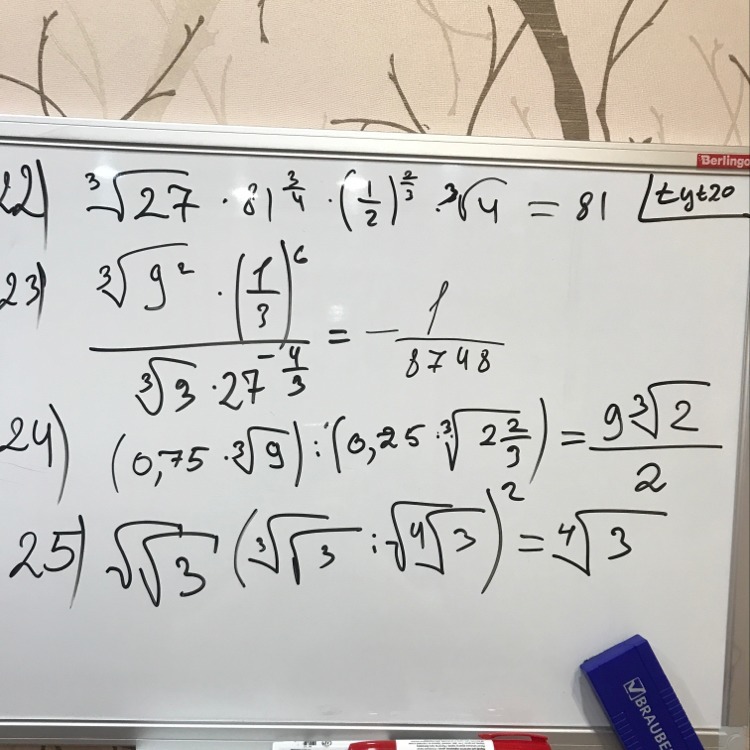 Berlingo
22) ∛27 · 81^(3/4) · (1/2)^(2/3) · ∛4 = 81 tyt20
23) (∛9² · (1/3)^6) / (∛3 · 27^(-4/3)) = - 1/8748
24) (0,75 · ∛9) : (0,25 · ∛(2 2/3)) = 9∛2 / 2
25) √√3 (∛√3 : √∜3)² = ∜3
BRAUBE